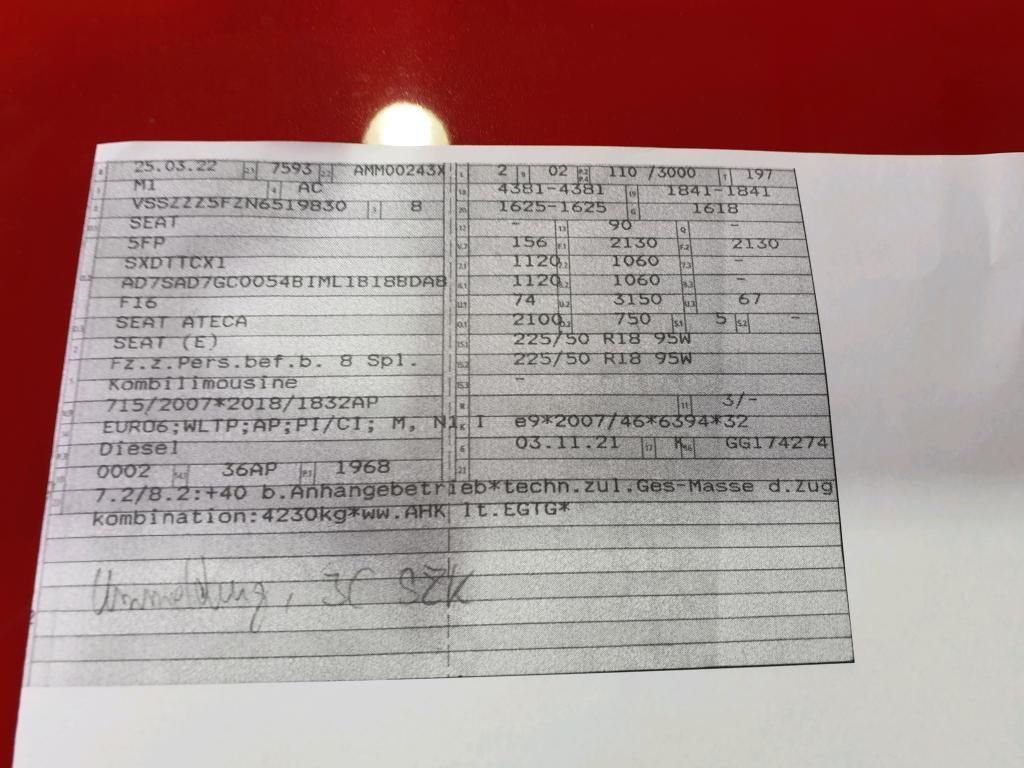 25.03.22 7593 AMM00243X 2 02 110 /3000 197
M1 AC 4381-4381 1841-1841
VSSZZZ5FZN6519830 8 1625-1625 1618
SEAT - 90 -
5FP 156 2130 2130
SXDTTCX1 1120 1060 -
AD7SAD7GC0054BIML1B188DAB 1120 1060 -
F16 74 3150 67
SEAT ATECA 2100 750 5 -
SEAT (E) 225/50 R18 95W
Fz.z.Pers.bef.b. 8 Spl. 225/50 R18 95W
Kombilimousine -
715/2007*2018/1832AP 3/-
EURO6;WLTP;AP;PI/CI; M, N1 I e9*2007/46*6394*32
Diesel 03.11.21 K GG174274
0002 36AP 1968
7.2/8.2:+40 b.Anhängebetrieb*techn.zul.Ges-Masse d.Zug
kombination:4230kg*ww.AHK lt.EGTG*
Ummeldung,